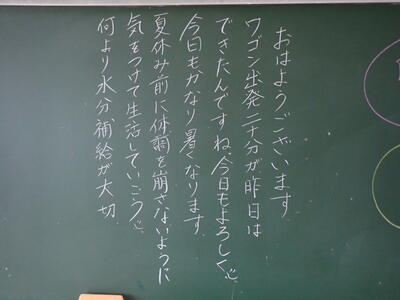 おはようございます
ワゴン出発二十分が昨日は
できたんですね。今日もよろしく
今日もかなり暑くなります
夏休み前に体調を崩さないように
気をつけて生活していこう
何より水分補給が大切